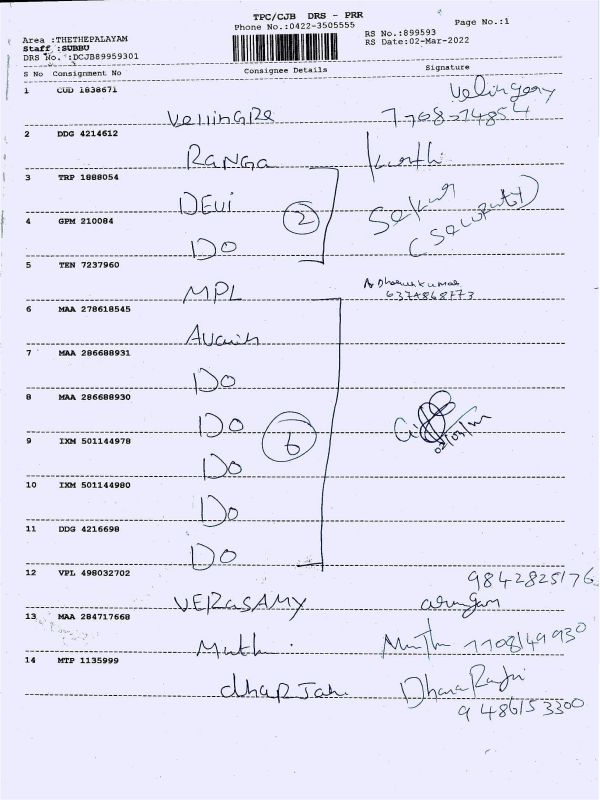 TPC/CJB DRS - PRR
Phone No.:0422-3505555
Page No.:1
Area :THETHEPALAYAM
Staff :SUBBU
DRS No.:DCJB89959301
RS No.:899593
RS Date:02-Mar-2022
S No Consignment No Consignee Details Signature
1 CUD 1838671
2 DDG 4214612
RANGA
3 TRP 1888054
DEVI
2
4 GPM 210084
DO
5 TEN 7237960
MPL
6374868773
6 MAA 278618545
7 MAA 286688931
DO
8 MAA 286688930
DO
6
9 IXM 501144978
DO
10 IXM 501144980
DO
11 DDG 4216698
DO
12 VPL 498032702
9842825176
VERASAMY
13 MAA 284717668
14 MTP 1135999
9486153300